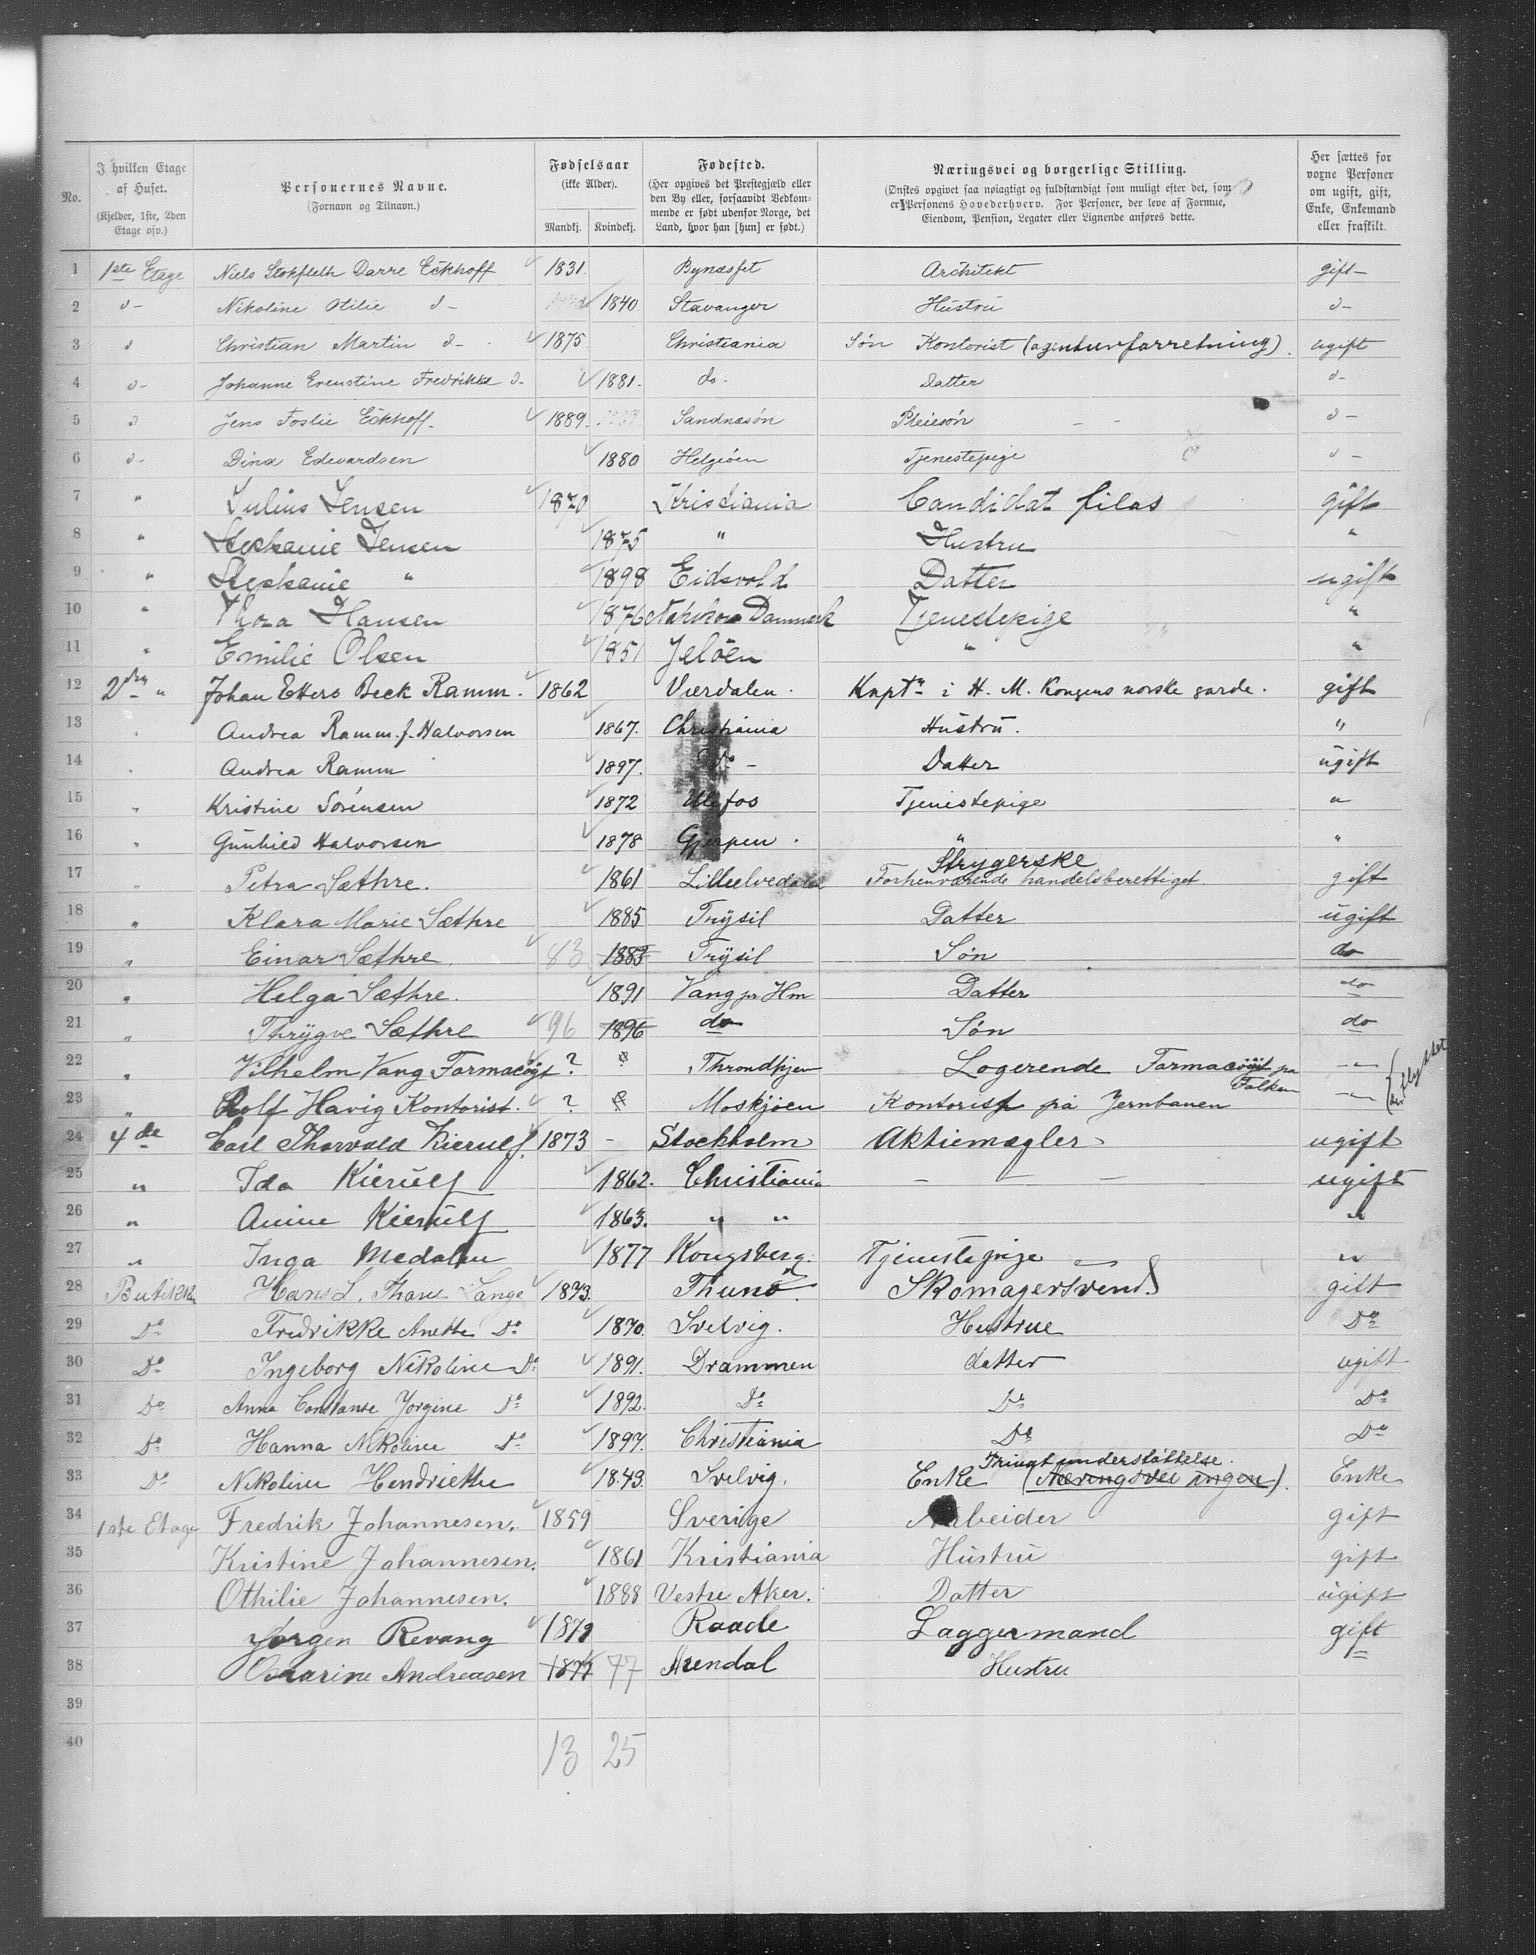 No.
I hvilken Etage af Huset. (Kjelder, 1ste, 2den Etage osv.)
Personernes Navne. (Fornavn og Tilnavn.)
Fødselsaar (ikke Alder).
Mandkj. Kvindekj.
Fødested. (Her opgives det Prestegjæld eller den By eller, forsaavidt Vedkommende er født udenfor Norge, det Land, hvor han [hun] er født.)
Næringsvei og borgerlige Stilling. (Ønskes opgivet saa nøiagtigt og fuldstændigt som muligt efter det, som er Personens Hovederhverv. For Personer, der leve af Formue, Eiendom, Pension, Legater eller Lignende anføres dette.
Her sættes for voxne Personer om ugift, gift, Enke, Enkemand eller fraskilt.
1 1ste Etage Niels Stokfleth Darre Eckhoff 1831. Bynæsset Architekt gift
2 d- Nikoline Otilie d- 1840 Stavanger Hustru d-
3 d Christian Martin d- 1875 Christiania Søn Kontorist (agenturforretning). ugift
4 d- Johanne Ernstine Fredrikke d. 1881. do. Datter d-
5 d Jens Foslie Eckhoff. 1889. Sandnesøn Pleiesøn d-
6 d- Dina Edvardsen 1880 Helgøen Tjenestepige d-
7 " Julius Jensen 1870 Kristiania Candidat filos gift
8 " Stephanie Jensen 1875 " Hustru "
9 " Stephanie " 1898 Eidsvold Datter ugift
10 " Thora Hansen 1876 Nakskov Danmark Tjenestepige "
11 " Emilie Olsen 1851 Jeløen " "
12 2den " Johan Ekers Beck Ramm. 1862 Værdalen. Kaptn i H. M. Kongens norske garde. gift
13 Andrea Ramm. f. Halvorsen 1867. Christiania Hustru. "
14 Andrea Ramm 1897. Do - Datter ugift
15 " Kristine Sørensen 1872 Ulefos Tjenestepige "
16 " Gunhild Halvorsen 1878 Gjerpen. " "
17 " Petra Sæthre. 1861 Lilleelvedalen Strygerske Forhenværende handelsberettiget gift
18 " Klara Marie Sæthre 1885 Trysil Datter ugift
19 " Einar Sæthre. 83 1883 Trysil Søn do
20 " Helga Sæthre. 1891 Vang pr Hm Datter do
21 " Thrygve Sæthre 96 1896 do Søn do
22 " Vilhelm Vang Farmaceut ? Throndhjem Logerende Farmaceut pa Falken "
23 " Rolf Havig Kontorist. ? Moskjøen Kontorist på Jernbanen "
24 4de Carl Thorvald Kierulf. 1873 - Stockholm Aktiemægler - ugift
25 " Ida Kierulf 1862. Christiania - - - ugift
26 " Amine Kierulf 1863. " " "
27 " Inga Medalen 1877 Kongsberg. Tjenestepige - "
28 Butikken Hans L. Thans Lange 1873. Thunø. Skomagersvend. gift
29 Do Fredrikke Anette Do 1870. Svelvig. Hustrue Do
30 Do Ingeborg Nikoline Do 1891. Drammen datter ugift
31 Do Anna Constanse Jorgine Do 1892. Do Do Do
32 Do Hanna Nikoline Do 1897. Christiania Do Do
33 Do Nikoline Hendriette 1843. Svelvig. Enke Privat understøttelse. (Næringsvei ingen). Enke
34 1ste Etage Fredrik Johannesen. 1859 Sverige Arbeider gift
35 Kristine Johannesen. 1861 Kristiania Hustru gift
36 Othilie Johannesen. 1888 Vestre Aker. Datter ugift
37 Jørgen Revang 1879 Raade Laggermand gift
38 Oskarine Andreasen 1877 77 Arendal Hustru "
39
40
13 25